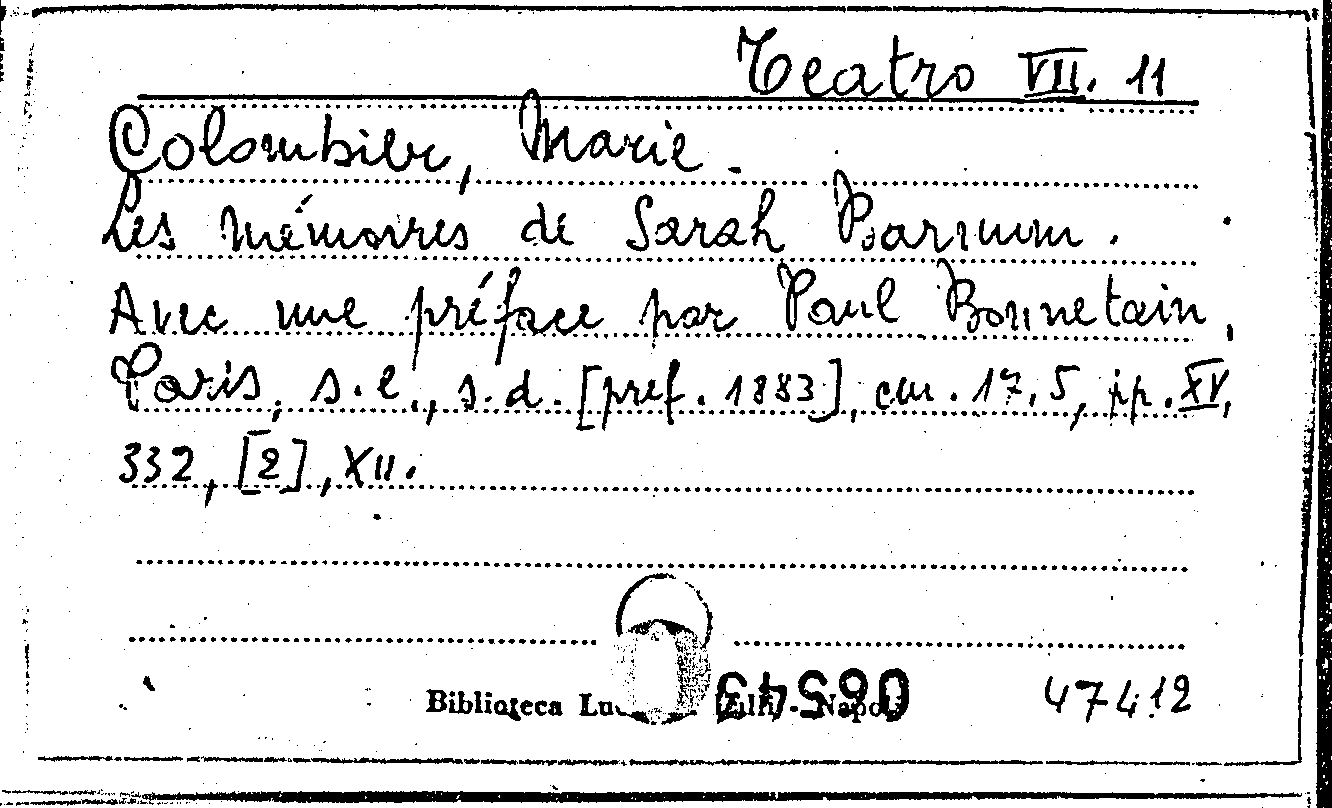 Teatro VII. 11
Colombier, Marie.
Les mémoires de Sarah Barnum.
Avec une préface par Paul Bonnetain.
Paris, s.e., s.d. [pref. 1883], cm. 17,5, pp. XV,
332, [2], XII.
Biblioteca Napoli 47412